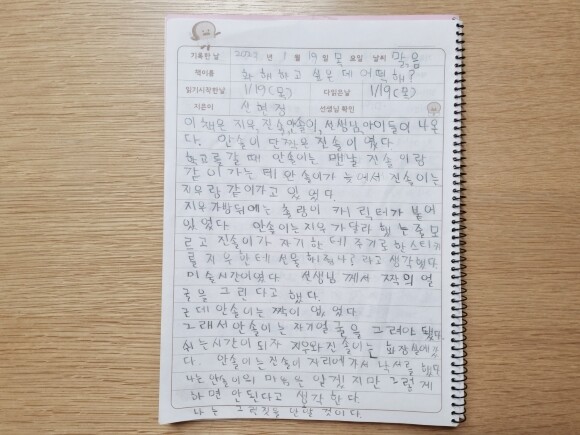 기록한 날 2023 년 1 월 19 일 목 요일 날씨 맑음
책이름 화해하고 싶은데 어떡해?
읽기시작한날 1/19(목) 다읽은날 1/19(목)
지은이 신혜영 선생님 확인
이 책은 지우, 진송, 안솔이, 선생님, 아이들이 나온
다. 안솔이 단짝은 진솔이 였다
학교를 갈 때 안솔이는 맨날 진솔이랑
같이 가는데 안솔이가 늦어서 진솔이는
지우랑 같이가고 있었다.
지우가방뒤에는 초랑이 캐릭터가 붙어
있었다 안솔이는 지우가 달라 했 누 줄모
르고 진솔이가 자기한데 주기로 한 스티커
를 지우한테 선물해줬나? 라고 생각했다.
미술시간이였다. 선생님께서 짝의 얼
굴을 그린다고 했다.
근데 안솔이는 짝이 없었다.
그래서 안솔이는 자기얼굴을 그려야 됐다.
쉬는시간이 되자 지우와 진솔이는 화장실에 갔
다. 안솔이는 진솔이 자리에가서 낙서를 했다
나는 안솔이의 마음은 알겠지만 그렇게
하면 안된다고 생각한다.
나는 그런짓을 안할 것이다.